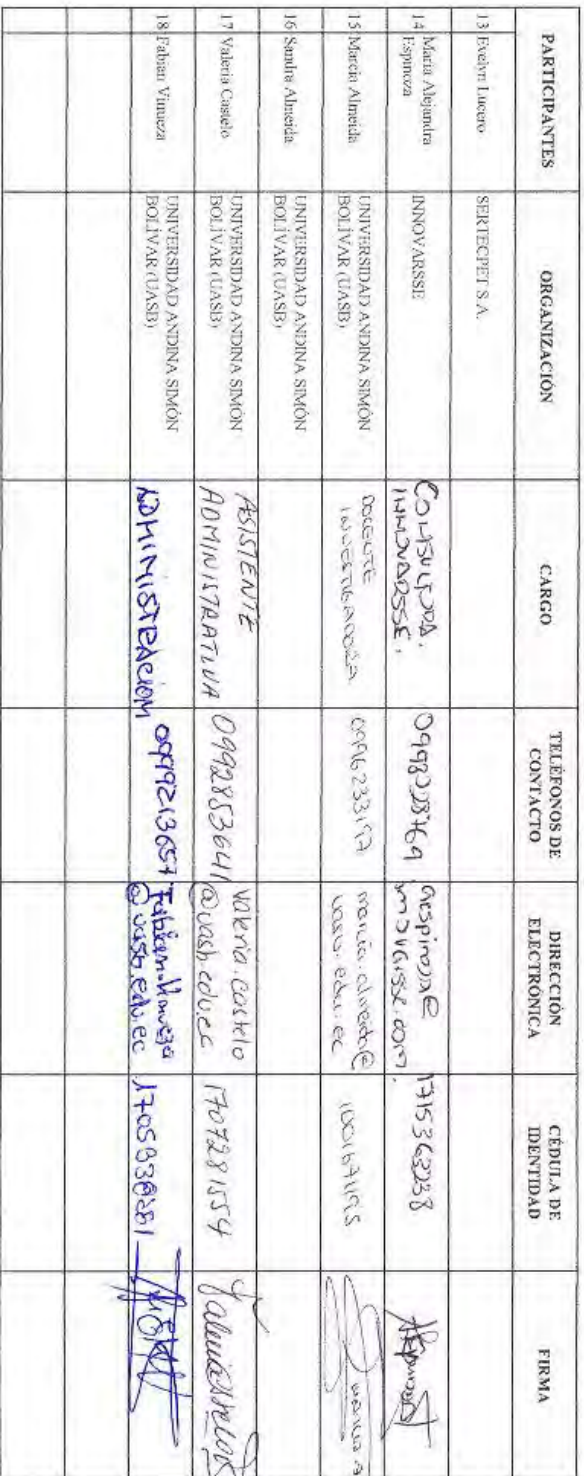 PARTICIPANTES ORGANIZACIÓN CARGO TELÉFONOS DE CONTACTO DIRECCIÓN ELECTRÓNICA CÉDULA DE IDENTIDAD FIRMA
13 Evelyn Lucero SERTECPET S.A.
14 María Alejandra Espinoza INNOVARSSE CONSULTORA. INNOVARSSE.
15 Marcia Almeida UNIVERSIDAD ANDINA SIMÓN BOLÍVAR (UASB) DOCENTE INVESTIGADORA
16 Sandra Almeida UNIVERSIDAD ANDINA SIMÓN BOLÍVAR (UASB)
17 Valeria Castelo UNIVERSIDAD ANDINA SIMÓN BOLÍVAR (UASB) ASISTENTE ADMINISTRATIVA 0992853641 valeria.castelo @uasb.edu.ec 1707281554
18 Fabian Vinueza UNIVERSIDAD ANDINA SIMÓN BOLÍVAR (UASB) ADMINISTRACION @uasb.edu.ec